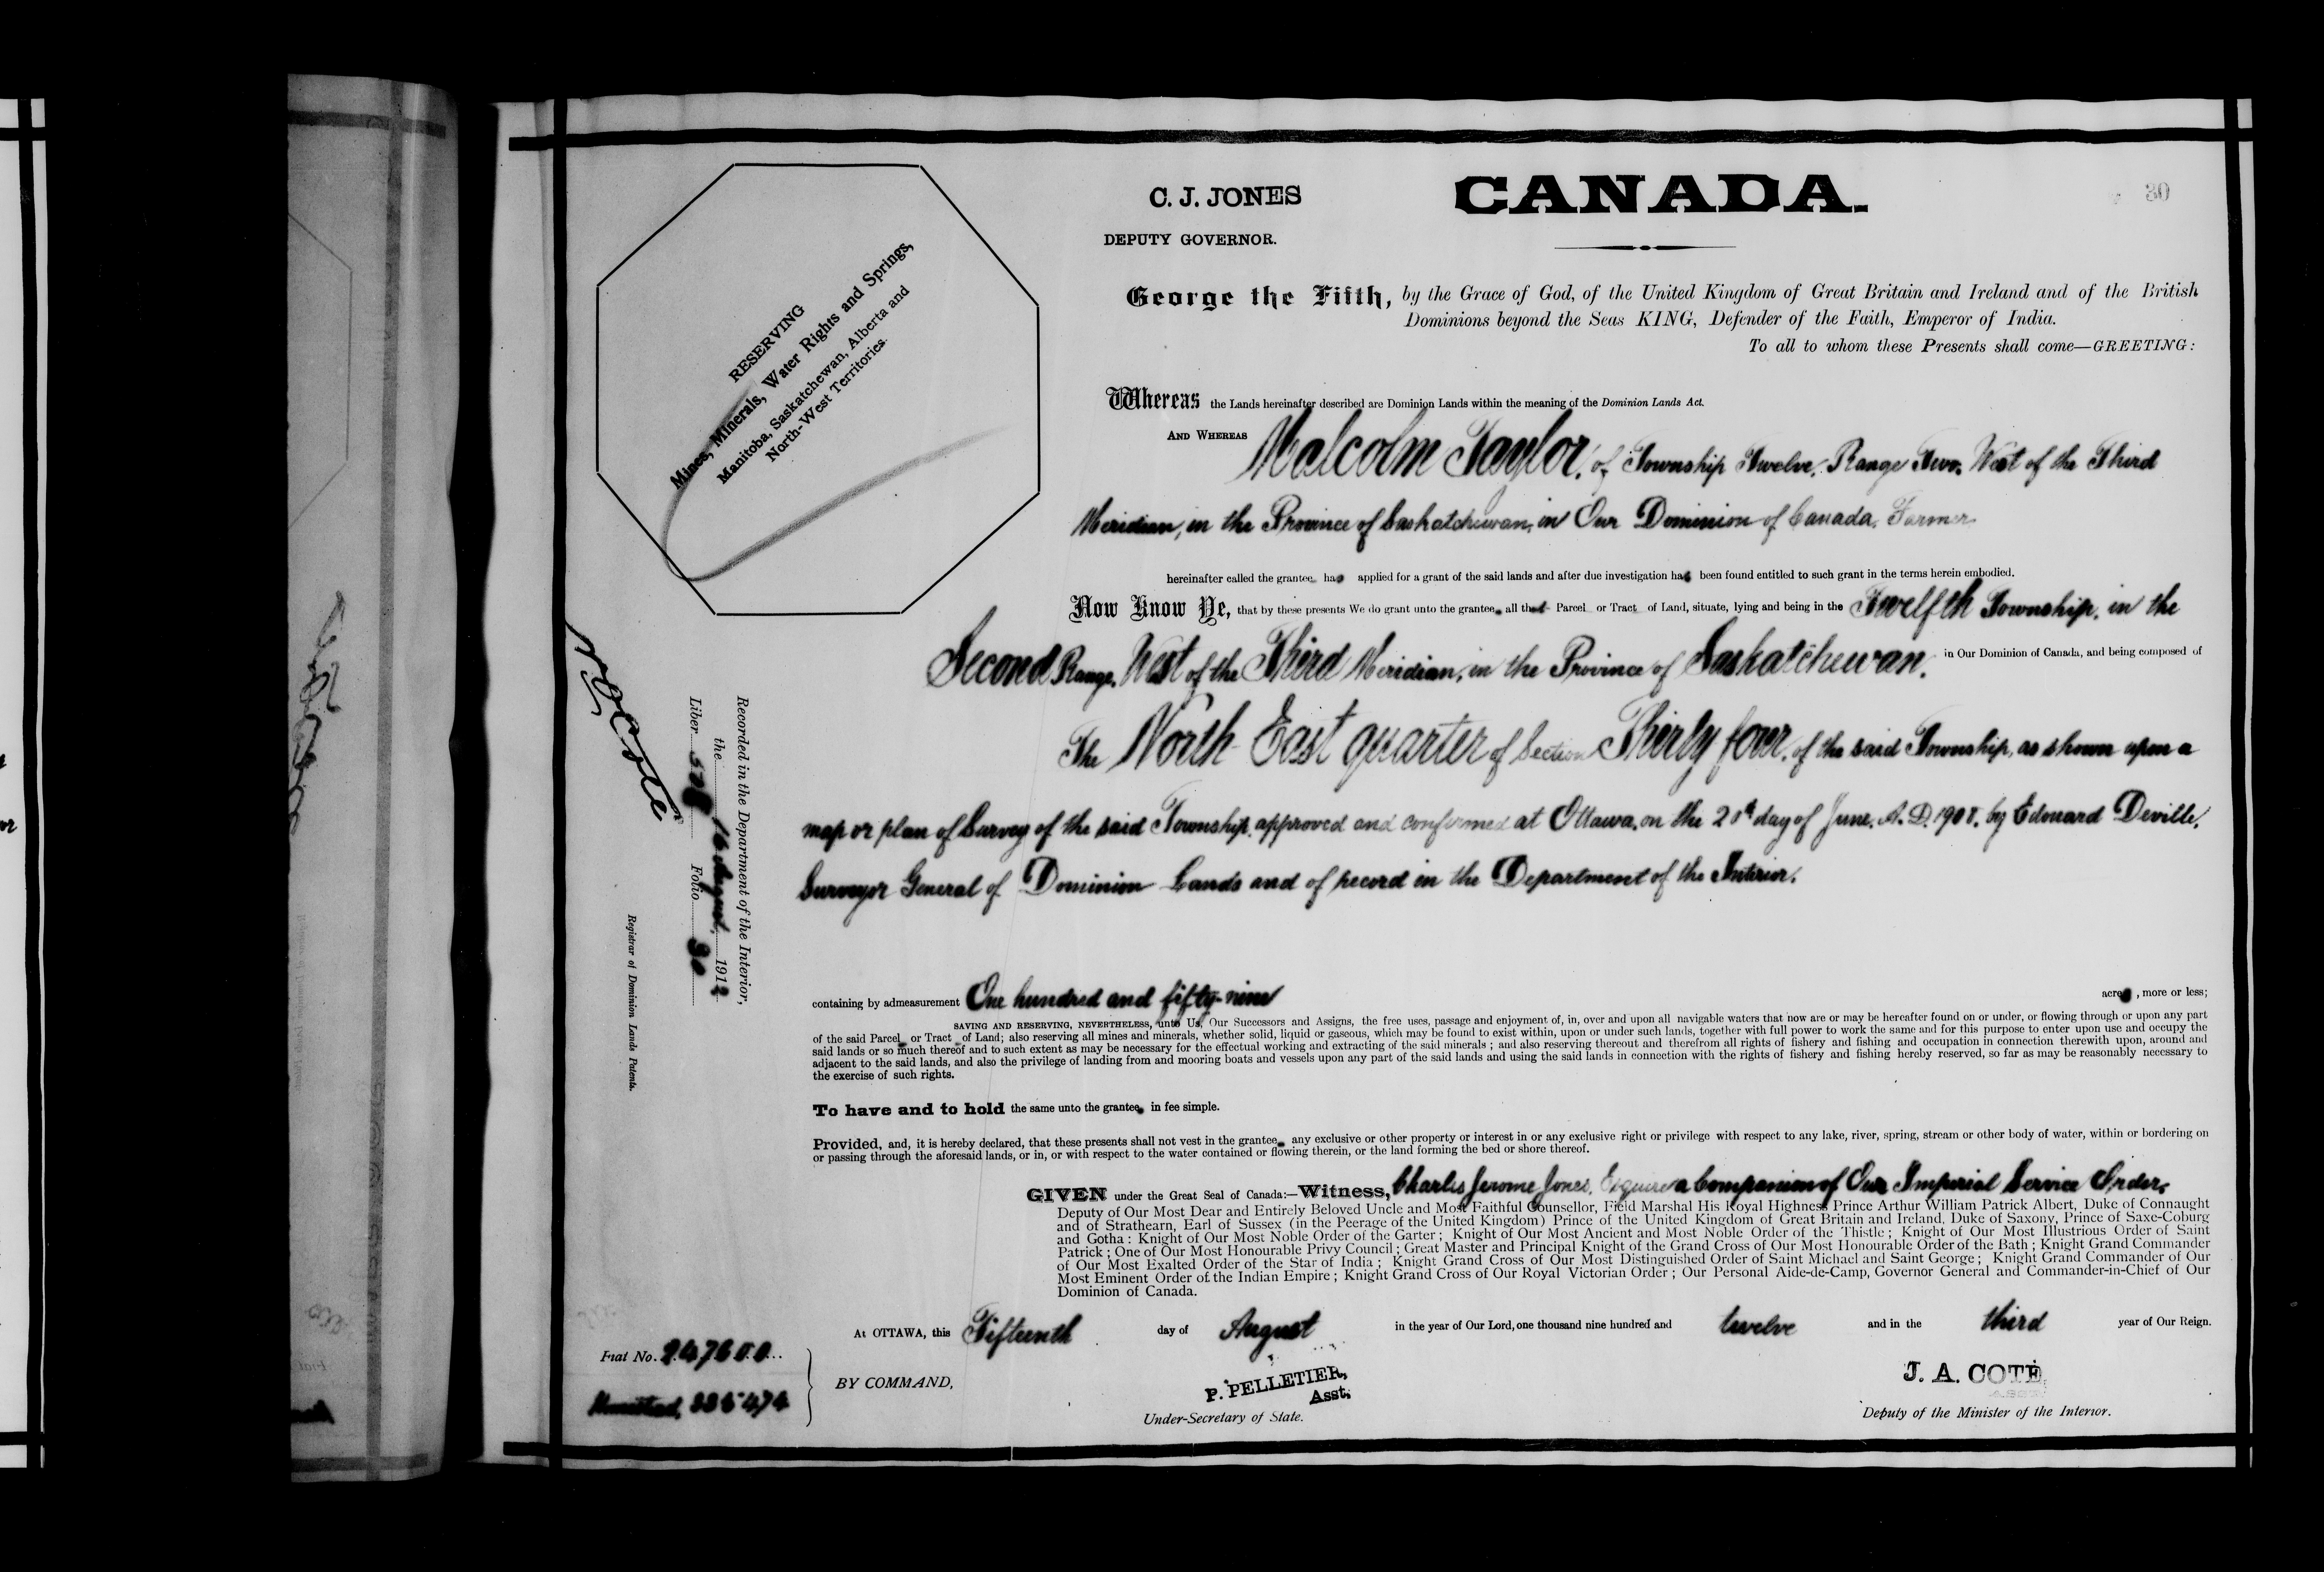 C. J. JONES
DEPUTY GOVERNOR.
CANADA.
30
RESERVING
Mines, Minerals, Water Rights and Springs,
Manitoba, Saskatchewan, Alberta and
North-West Territories.
George the Fifth, by the Grace of God, of the United Kingdom of Great Britain and Ireland and of the British
Dominions beyond the Seas KING, Defender of the Faith, Emperor of India.
To all to whom these Presents shall come—GREETING:
Whereas the Lands hereinafter described are Dominion Lands within the meaning of the Dominion Lands Act.
AND WHEREAS Malcolm Taylor, of Township Twelve, Range Two, West of the Third
Meridian, in the Province of Saskatchewan, in Our Dominion of Canada, Farmer
hereinafter called the grantee has applied for a grant of the said lands and after due investigation has been found entitled to such grant in the terms herein embodied.
Now Know Ye, that by these presents We do grant unto the grantee all that Parcel or Tract of Land, situate, lying and being in the Twelfth Township, in the
Second Range, West of the Third Meridian, in the Province of Saskatchewan, in Our Dominion of Canada, and being composed of
The North East quarter of Section Thirty four, of the said Township, as shown upon a
map or plan of Survey of the said Township, approved and confirmed at Ottawa, on the day of June, A.D. 1908, by Edouard Deville,
Surveyor General of Dominion Lands and of record in the Department of the Interior.
containing by admeasurement One hundred and fifty-nine acres, more or less;
SAVING AND RESERVING, NEVERTHELESS, unto Us, Our Successors and Assigns, the free uses, passage and enjoyment of, in, over and upon all navigable waters that now are or may be hereafter found on or under, or flowing through or upon any part
of the said Parcel or Tract of Land; also reserving all mines and minerals, whether solid, liquid or gaseous, which may be found to exist within, upon or under such lands, together with full power to work the same and for this purpose to enter upon use and occupy the
said lands or so much thereof and to such extent as may be necessary for the effectual working and extracting of the said minerals ; and also reserving thereout and therefrom all rights of fishery and fishing and occupation in connection therewith upon, around and
adjacent to the said lands, and also the privilege of landing from and mooring boats and vessels upon any part of the said lands and using the said lands in connection with the rights of fishery and fishing hereby reserved, so far as may be reasonably necessary to
the exercise of such rights.
To have and to hold the same unto the grantee in fee simple.
Provided, and, it is hereby declared, that these presents shall not vest in the grantee any exclusive or other property or interest in or any exclusive right or privilege with respect to any lake, river, spring, stream or other body of water, within or bordering on
or passing through the aforesaid lands, or in, or with respect to the water contained or flowing therein, or the land forming the bed or shore thereof.
GIVEN under the Great Seal of Canada:—Witness, Charles Jerome Jones, Esquire a Companion of Our Imperial Service Order,
Deputy of Our Most Dear and Entirely Beloved Uncle and Most Faithful Counsellor, Field Marshal His Royal Highness Prince Arthur William Patrick Albert, Duke of Connaught
and of Strathearn, Earl of Sussex (in the Peerage of the United Kingdom) Prince of the United Kingdom of Great Britain and Ireland, Duke of Saxony, Prince of Saxe-Coburg
and Gotha : Knight of Our Most Noble Order of the Garter ; Knight of Our Most Ancient and Most Noble Order of the Thistle ; Knight of Our Most Illustrious Order of Saint
Patrick ; One of Our Most Honourable Privy Council ; Great Master and Principal Knight of the Grand Cross of Our Most Honourable Order of the Bath ; Knight Grand Commander
of Our Most Exalted Order of the Star of India ; Knight Grand Cross of Our Most Distinguished Order of Saint Michael and Saint George ; Knight Grand Commander of Our
Most Eminent Order of the Indian Empire ; Knight Grand Cross of Our Royal Victorian Order ; Our Personal Aide-de-Camp, Governor General and Commander-in-Chief of Our
Dominion of Canada.
At OTTAWA, this Fifteenth day of August in the year of Our Lord, one thousand nine hundred and twelve and in the third year of Our Reign.
BY COMMAND,
P. PELLETIER,
Asst.
Under-Secretary of State.
J. A. COTE
Deputy of the Minister of the Interior.
Fiat No. 247600
Homestead,
Recorded in the Department of the Interior,
the 16 August 1912
Liber 528 Folio 30
N O Coté
Registrar of Dominion Lands Patents.